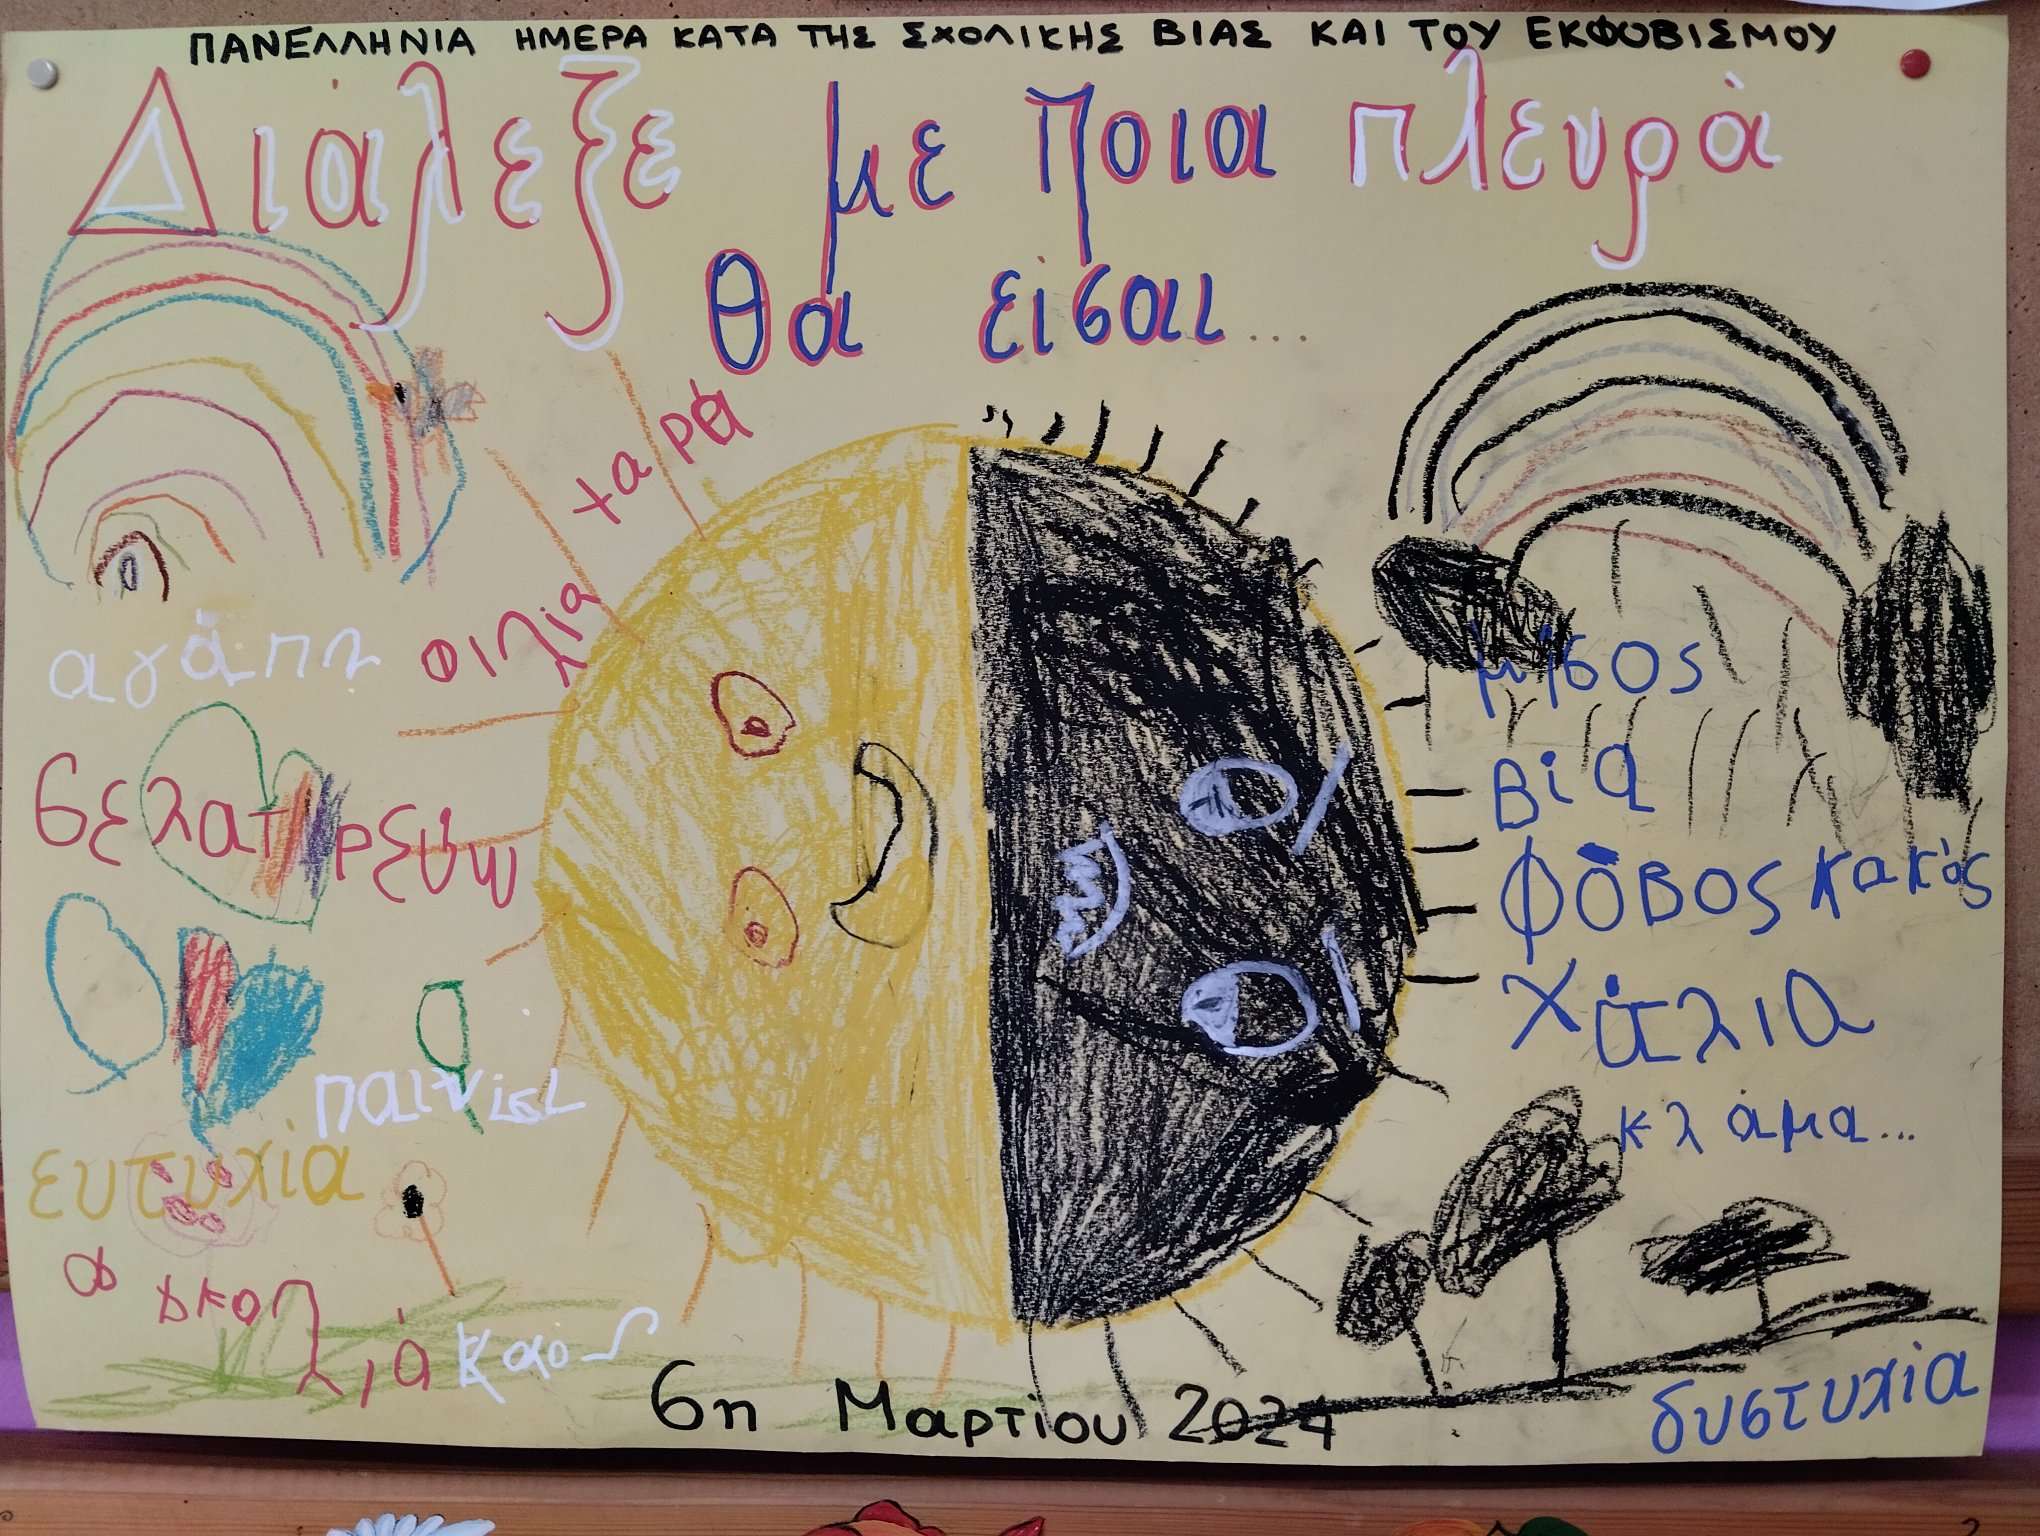 ΠΑΝΕΛΛΗΝΙΑ ΗΜΕΡΑ ΚΑΤΑ ΤΗΣ ΣΧΟΛΙΚΗΣ ΒΙΑΣ ΚΑΙ ΤΟΥ ΕΚΦΟΒΙΣΜΟΥ
Διάλεξε με ποια πλευρά
θα είσαι...
χαρά
φιλία
αγάπη
σε λατρεύω
ευτυχία
μίσος
βία
φόβος κακός
χάλια
κλάμα...
δυστυχία
6η Μαρτίου 2024